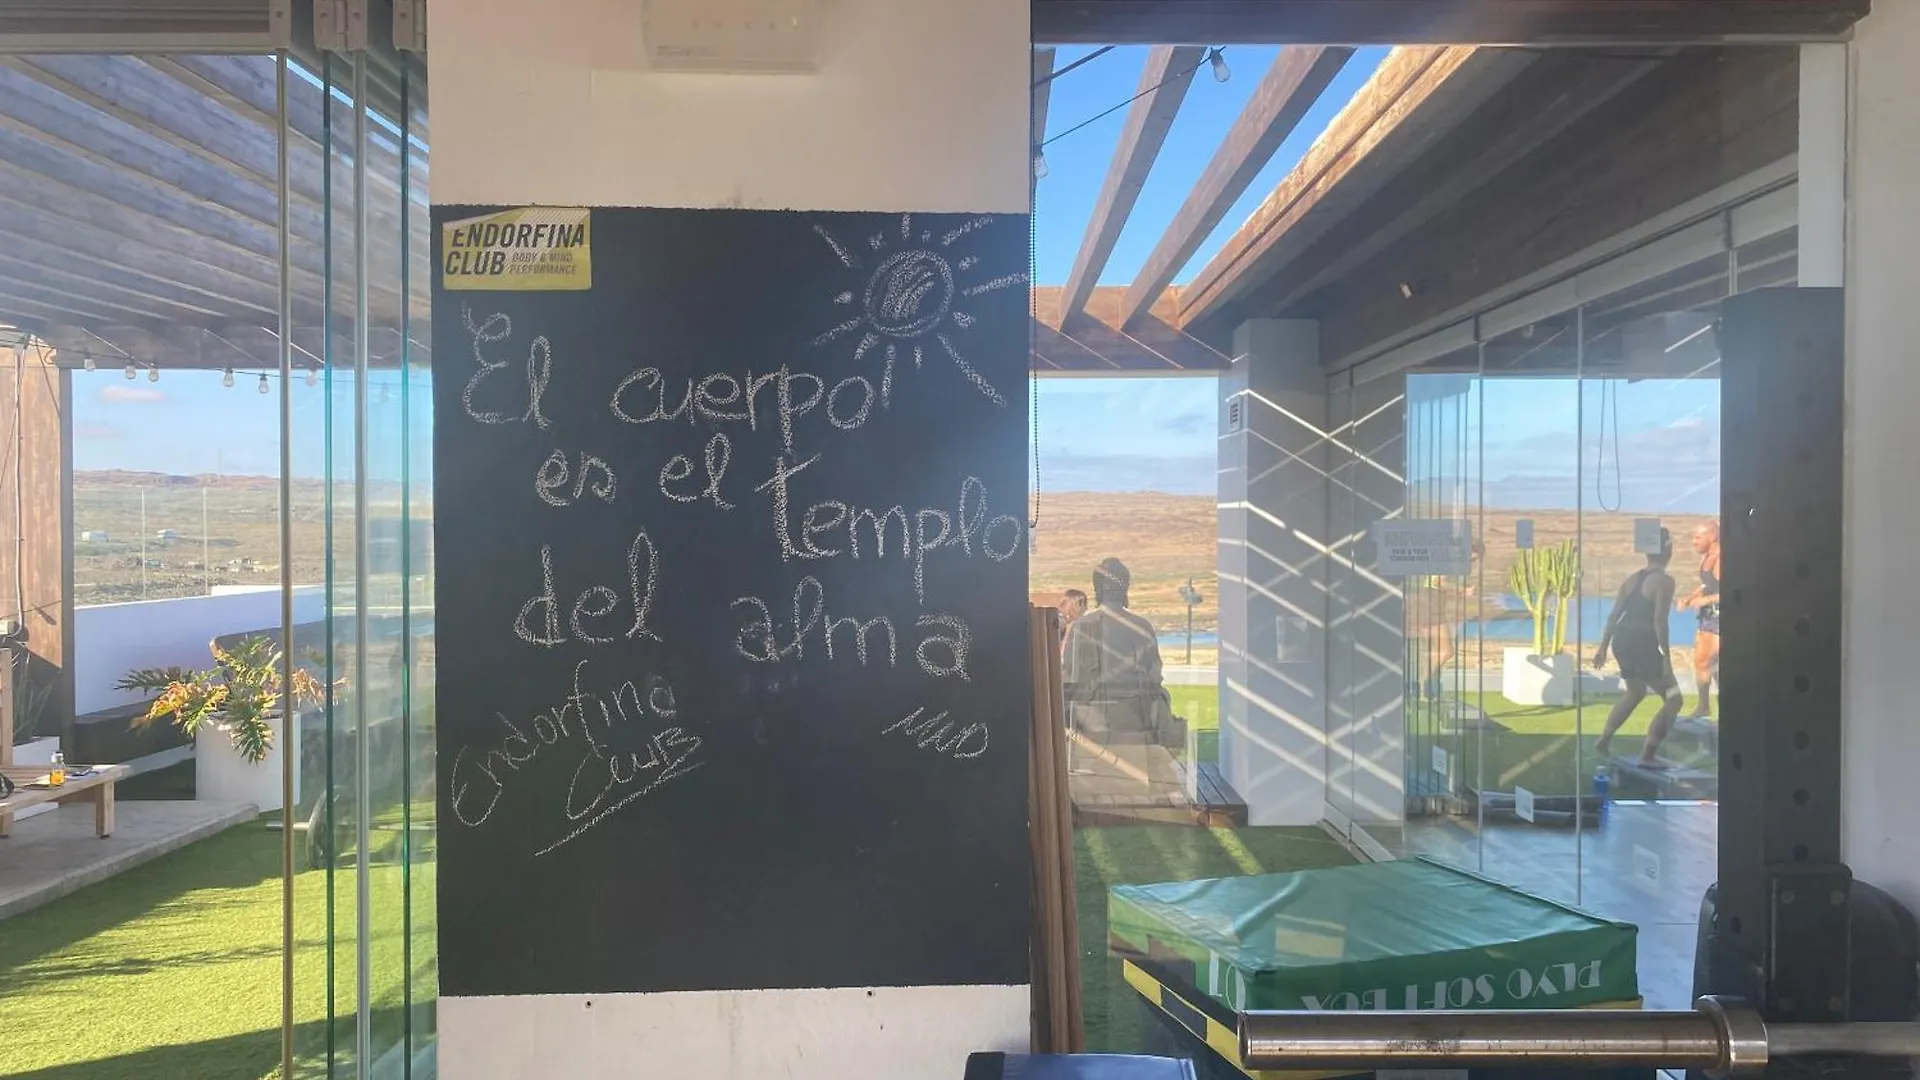 ENDORFINA
CLUB BODY & MIND
PERFORMANCE
El cuerpo
es el templo
del alma
Endorfina
CLUB
PLYO SOFT BOX